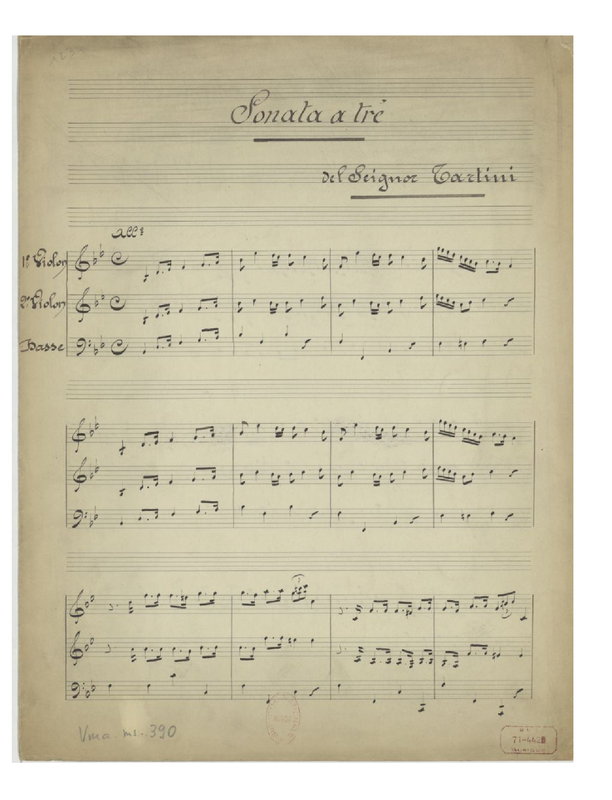 Sonata a tré
del Seignor Tartini
All?
1? Violon
2? Violon
Basse
3
Vma. ms. 390